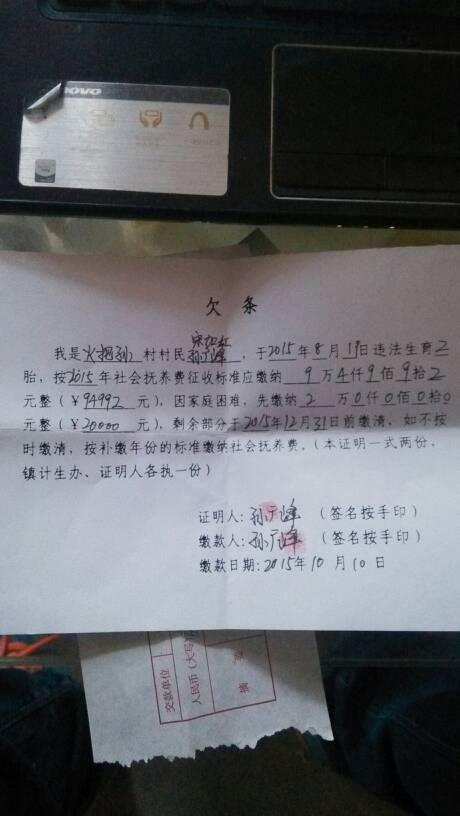 novo
欠 条
宋红红
我是火把孙村村民孙广峰,于2015年8月19日违法生育二
胎,按2015年社会抚养费征收标准应缴纳 9万4仟9佰9拾2
元整(¥94992 元),因家庭困难,先缴纳 2 万0仟0佰0拾0
元整(¥20000 元),剩余部分于2015年12月31日前缴清,如不按
时缴清,按补缴年份的标准缴纳社会抚养费。(本证明一式两份,
镇计生办、证明人各执一份)
证明人:孙广峰 (签名按手印)
缴款人:孙广峰 (签名按手印)
缴款日期:2015年10月10日
交款单位
人民币(大写)
摘